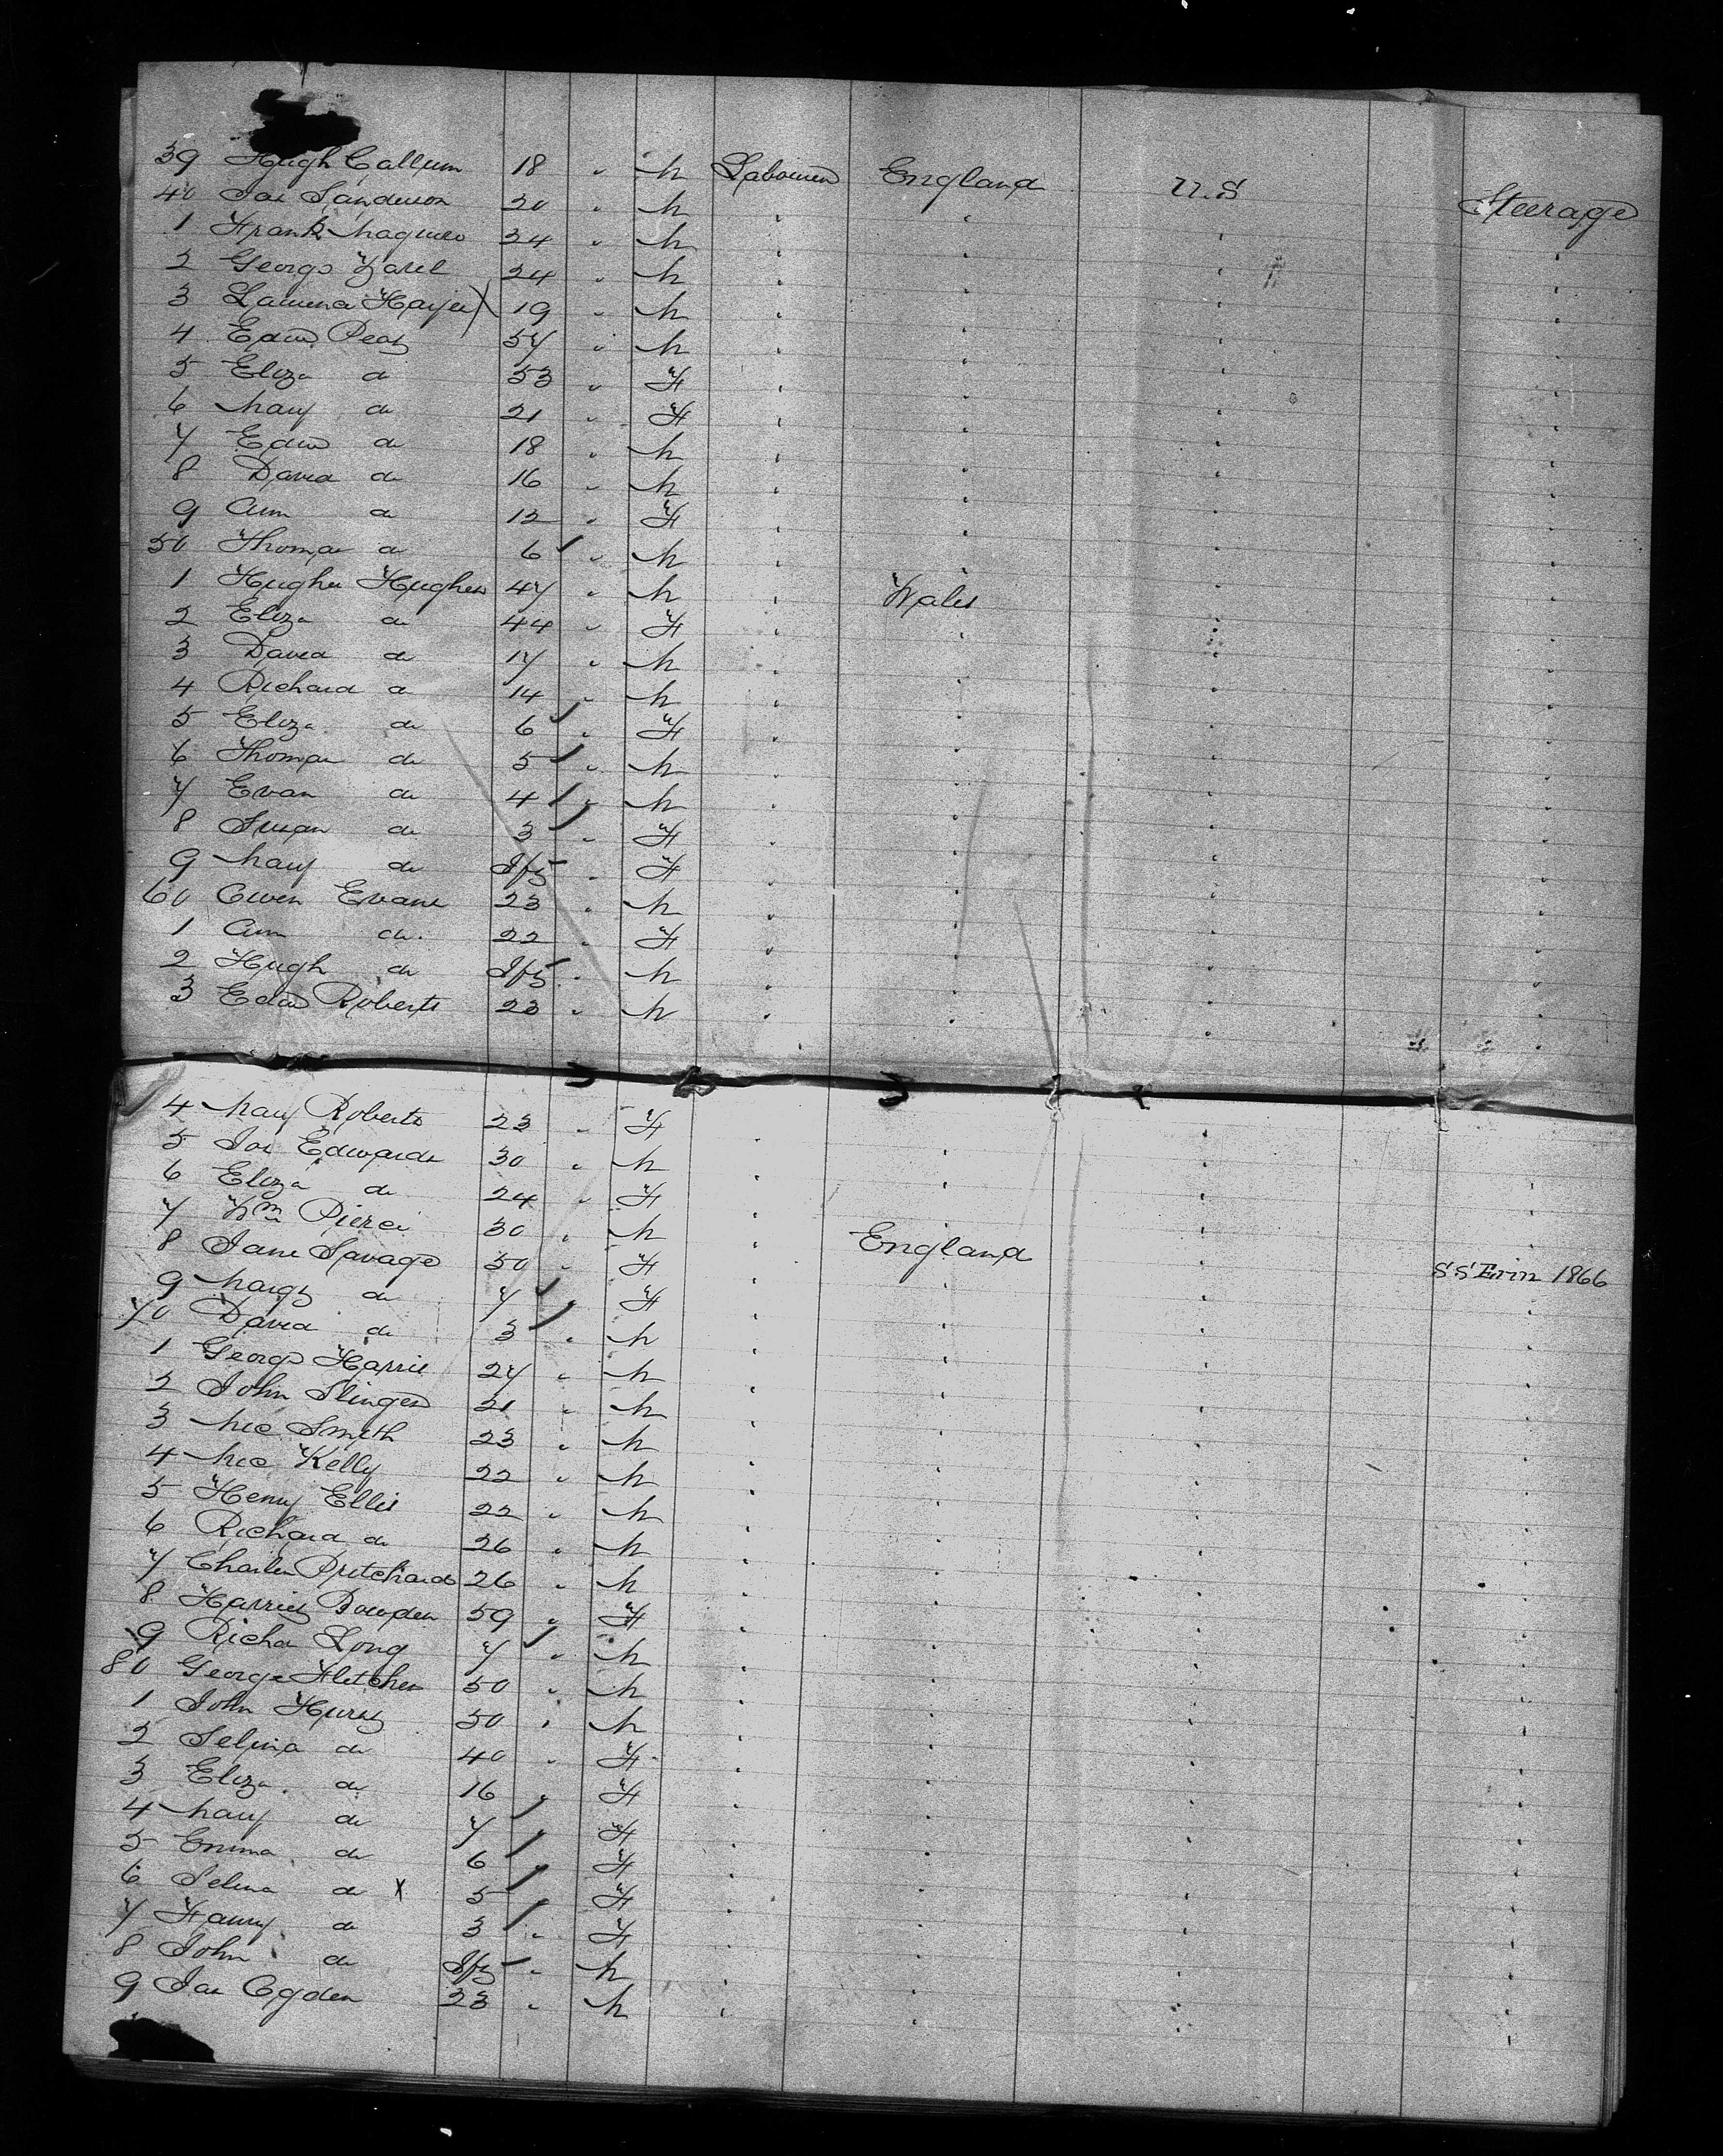 39 Hugh Callum 18 " M Labourer England U.S Steerage
40 Jas Sanderson 20 " M " " " "
1 Frank Maguire 34 " M " " " "
2 George 24 " M " " " "
3 19 " M " " " "
4 Edwd Peat 57 " M " " " "
5 Eliza do 53 " F " " " "
6 Mary do 21 " F " " " "
7 Edwd do 18 " M " " " "
8 David do 16 " M " " " "
9 Ann do 12 " F " " " "
50 Thomas do 6 " M " " " "
1 Hughes 47 " M " Wales " "
2 Eliza do 44 " F " " " "
3 David do 17 " M " " " "
4 Richard do 14 " M " " " "
5 Eliza do 6 " F " " " "
6 Thomas do 5 " M " " " "
7 Evan do 4 " M " " " "
8 Susan do 3 " F " " " "
9 Mary do Inft " F " " " "
60 Owen Evans 23 " M " " " "
1 Ann do 22 " F " " " "
2 Hugh do Inft " M " " " "
3 Edwd Roberts 23 " M " " " "
4 Mary Roberts 23 " F " " " "
5 Jas Edwards 30 " M " " " "
6 Eliza do 24 " F " " " "
7 Wm Pierce 30 " M " England " "
8 Jane Savage 50 " F " " " SS Erin 1866
9 Margt do 7 " F " " " "
70 David do 3 " M " " " "
1 George Harris 27 " M " " " "
2 John Slinger 21 " M " " " "
3 Mic Smith 23 " M " " " "
4 Mic Kelly 22 " M " " " "
5 Henry Ellis 22 " M " " " "
6 Richard do 26 " M " " " "
7 Charles Pritchard 26 " M " " " "
8 Harriet Bowden 59 " F " " " "
9 Richd Long 7 " M " " " "
80 George Fletcher 50 " M " " " "
1 John Hurst 50 " M " " " "
2 Selina do 40 " F " " " "
3 Eliza do 16 " F " " " "
4 Mary do 7 " F " " " "
5 Emma do 6 " F " " " "
6 Selina do X 5 " F " " " "
7 Fanny do 3 " F " " " "
8 John do Inft " M " " " "
9 Jas Ogden 23 " M " " " "